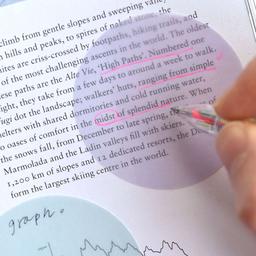 climb from gentle slopes and sweeping valley
hills and peaks, to spires of naked stone, the
ites are criss-crossed by footpaths, hiking trails, and
of the most challenging ascents in the world. The older
ese paths are the Alte Vie, 'High Paths'. Numbered one
ight, they take from a few days to around a week to walk.
fugi dot the landscape; walkers' huts, ranging from simple
elters with shared dormitories and cold running water,
o oases of comfort in the midst of splendid nature. When
the snows fall, from December to late spring,
Marmolada and the Ladin valleys fill with skiers.
1,200 km of slopes and 12 dedicated resorts, the Do
form the largest skiing centre in the world.
graph.